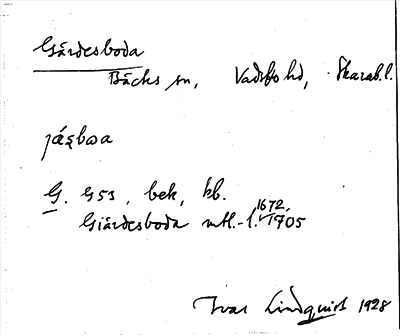 Gärdesboda
Bäcks sn, Vadsbo hd, Skarab. l.
jáʂbωa
G. G53, bek, kb.
Giärdesboda mtl. - l. 1672, 1705
Ivar Lindquist 1928